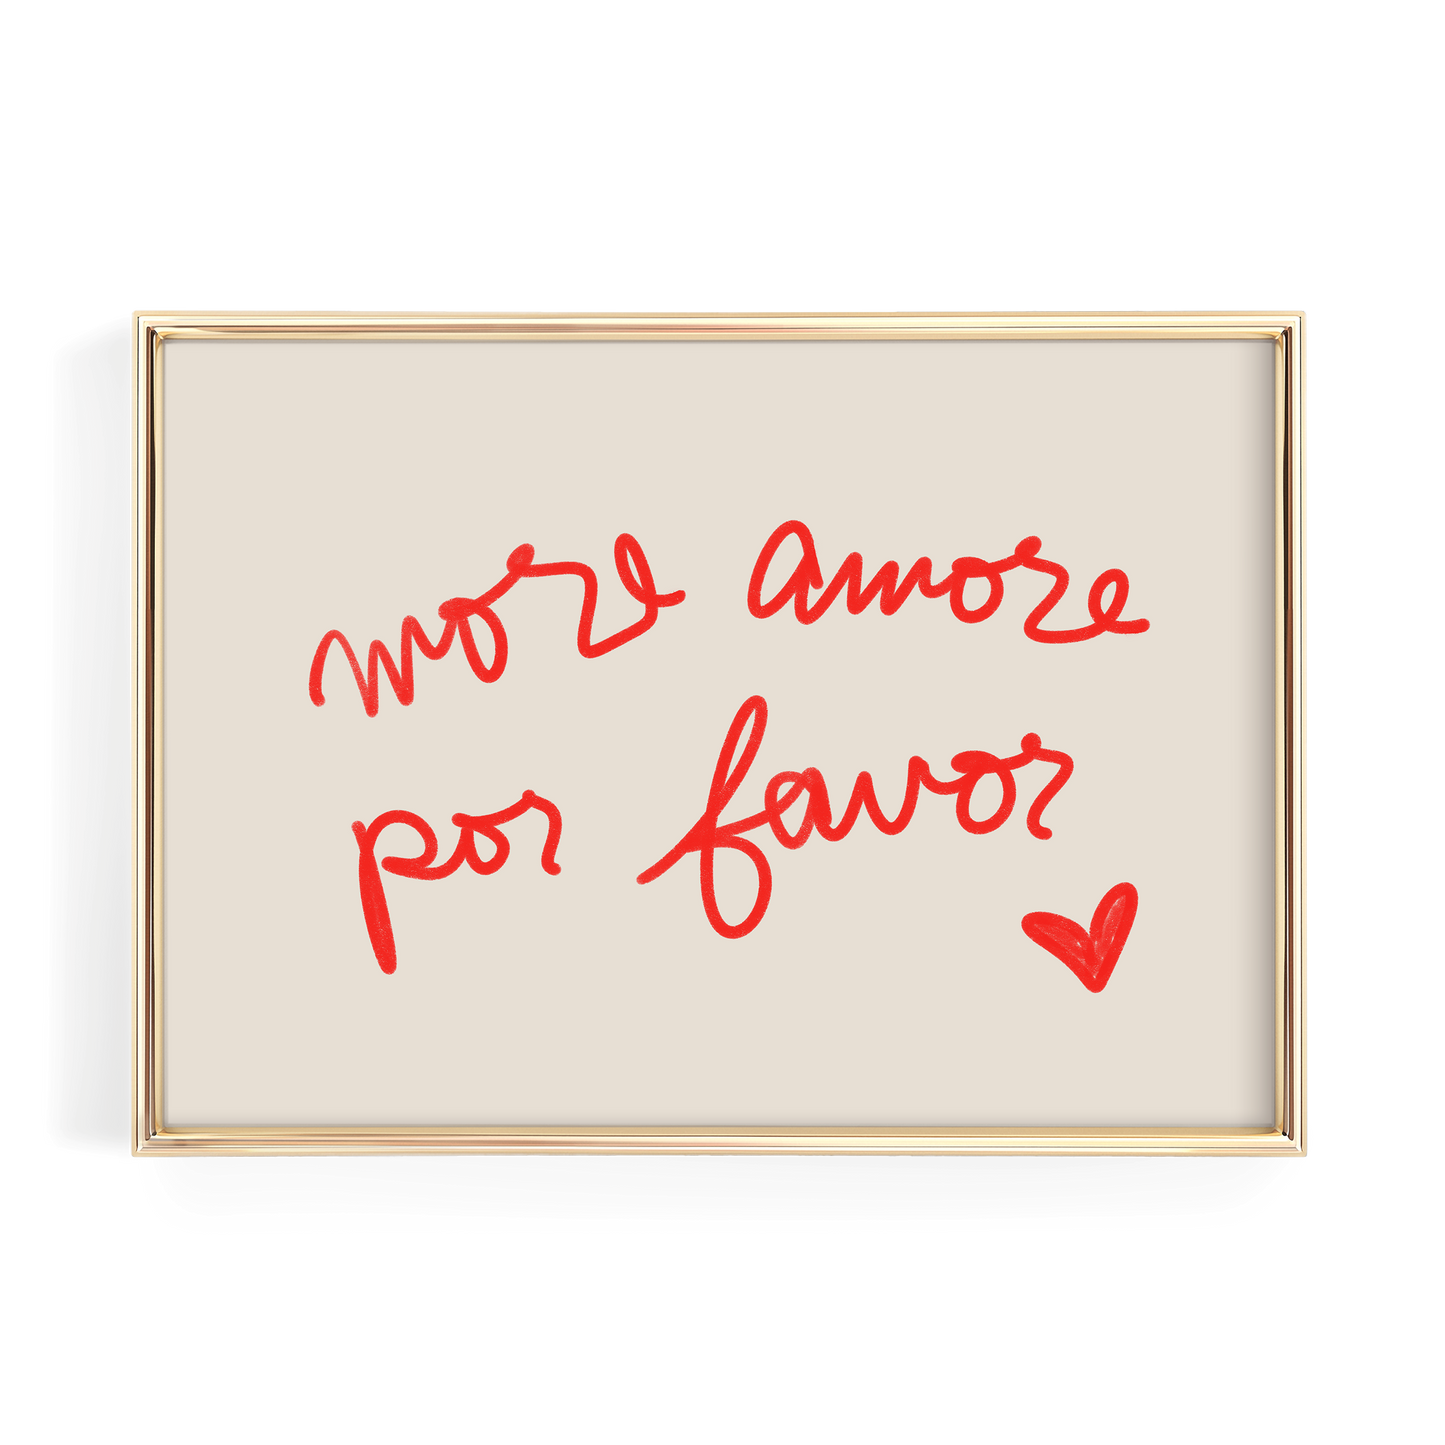 more amore
por favor